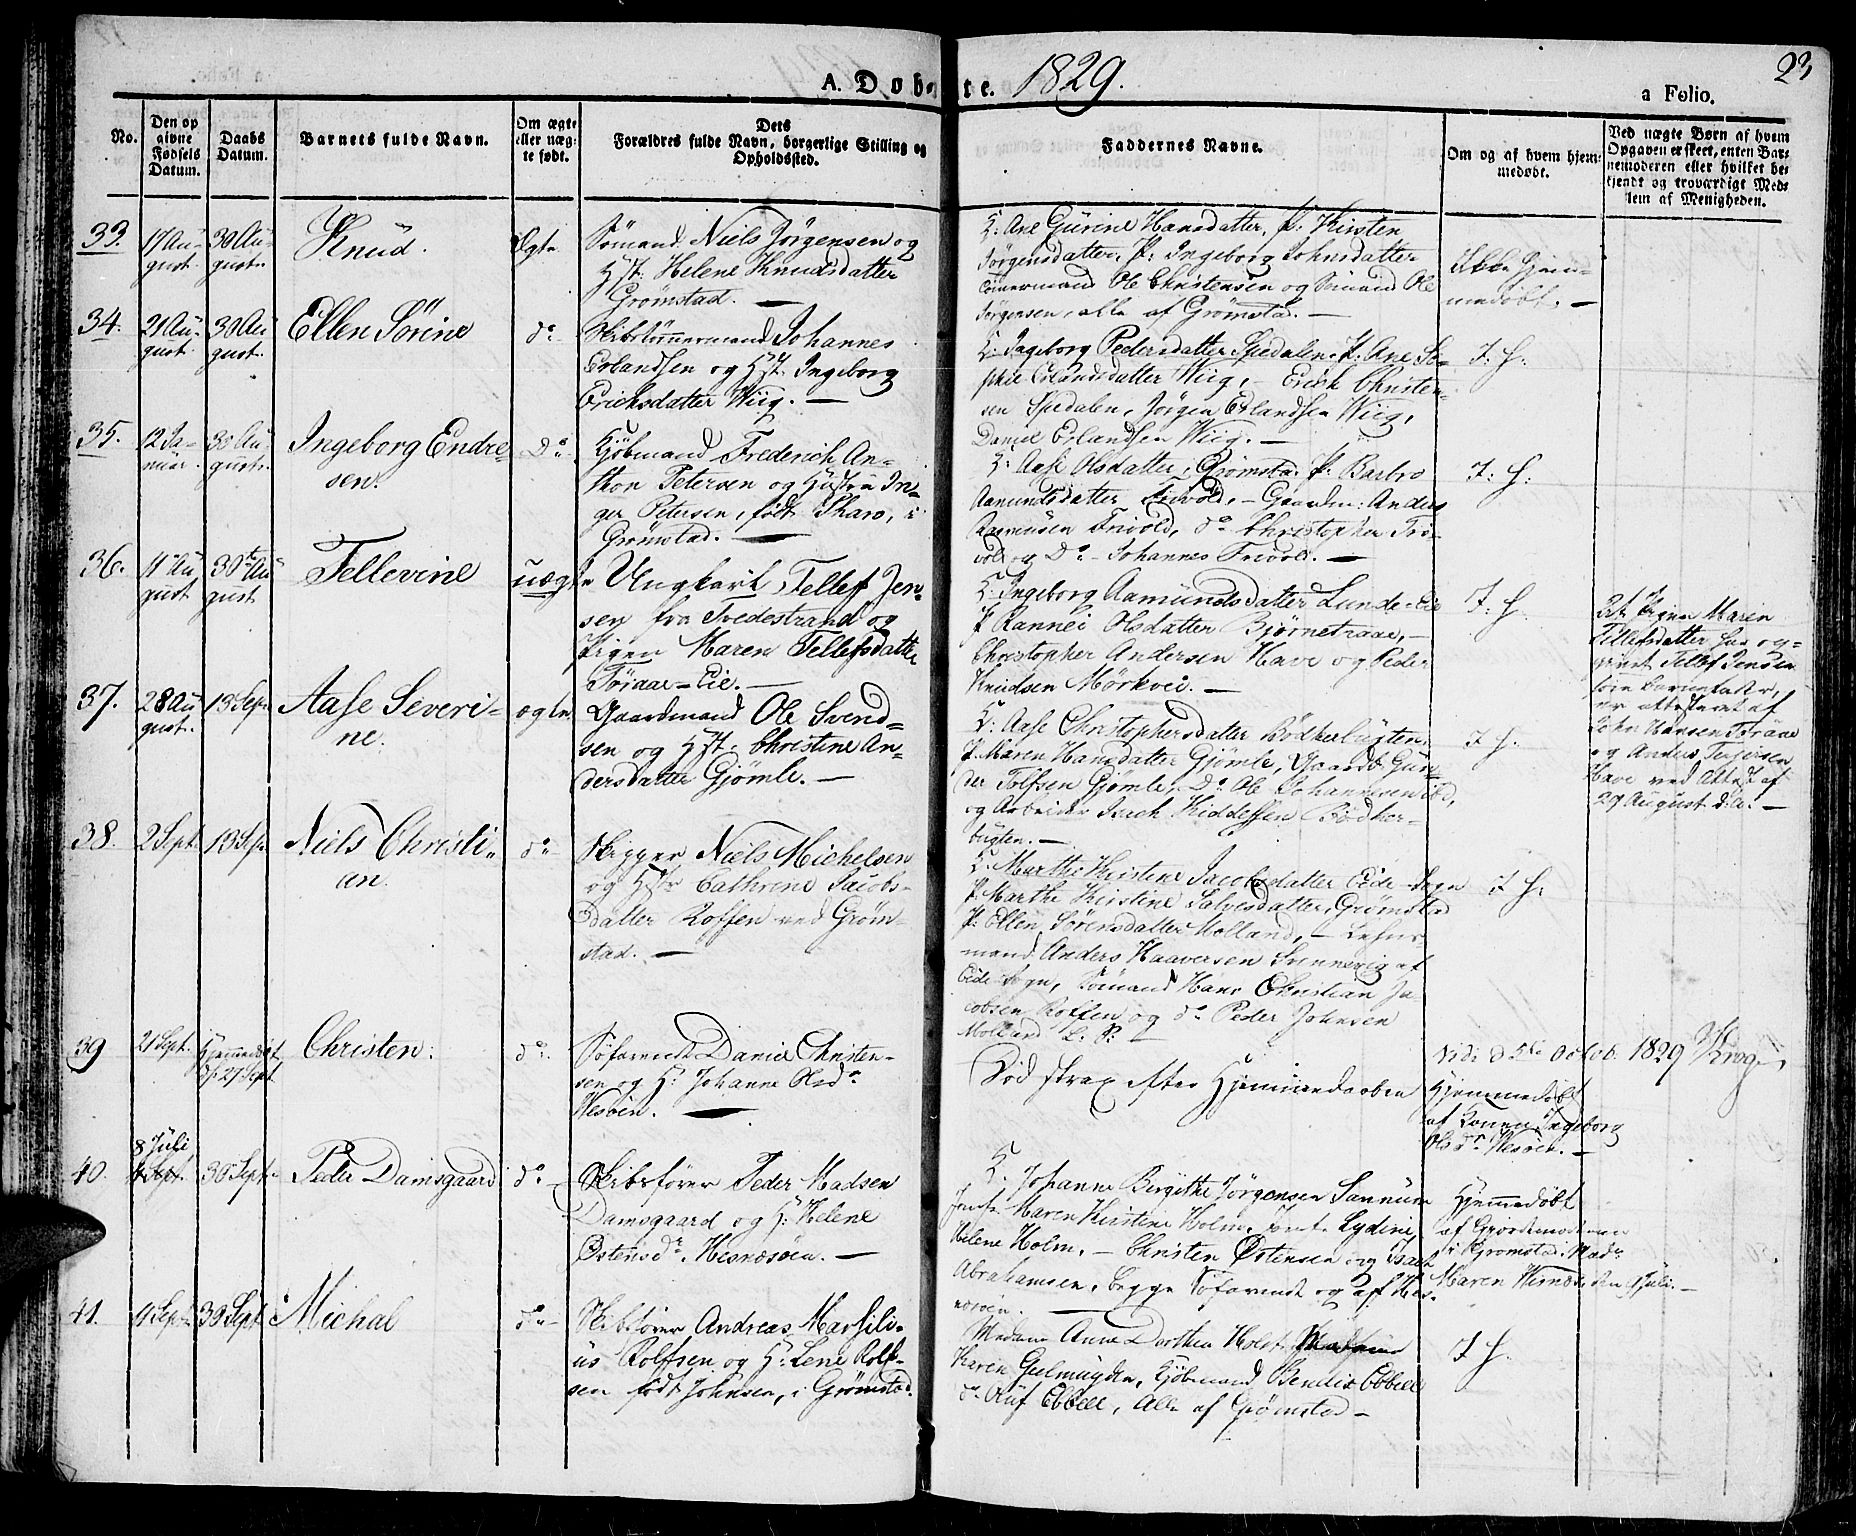 23
A. Døbte. 1829.
a Folio.
No.
Den op
givne
Fødsels
Datum.
Daabs
Datum.
Barnets fulde Navn.
Om ægte
eller uæg-
te født.
Dets
Forældres fulde Navn, borgerlige Stilling og
Opholdssted.
Faddernes Navne.
Om og af hvem hjem-
medøbt.
Ved uægte Børn af hvem
Opgaven er skeet, enten Bar-
nemoderen eller hvilket be-
kjendt og troværdigt Med-
lem af Menigheden.
33.
17 Au-
gust.
30 Au-
gust.
Knud.
Ægte
Sømand Niels Jörgensen og
Hst. Helene Knudsdatter
Grömstad. —
K: Ane Gurine Hansdatter, P. Kirsten
Jörgensdatter, P. Ingeborg Johnsdatter
Tömermand Ole Christensen og Sömand Ole
Jörgensen, alle af Grömstad. —
Ikke Hjem-
medøbt. —
34.
21 Au-
gust.
30 Au
gust.
Ellen Sörine
do
Skibstömmermand Johannes
Erlandsen og Hst. Ingeborg
Erichsdatter Wiig. —
K: Ingeborg Pedersdatter Spedalen, P. Ane So-
phie Erlandsdatter Wiig, — Erich Christen-
sen Spedalen, Jörgen Erlandsen Wiig,
Daniel Erlandsen Wiig. —
I: H:
35.
12 Ja-
nuar.
30 Au-
gust.
Ingeborg Endre-
sen.
Do
Kjöbmand Frederich An-
thon Petersen og Hustru In-
ger Petersen, født Tharo, i
Grömstad. —
K: Aase Olsdatter, Grömstad. P. Barbro
Aamundsdatter Frivold, — Gaardm: Anders
Rasmusen Frivold, do Christopher Fri-
vold og Do Johannes Frivold. —
I: H:
36.
11te Au
gust
30te Au
gust
Tellevine
uægte
Ungkarl Tellef Jen-
sen fra Tvedestrand og
Pigen Maren Tellefsdatter
Töraas-Eie. —
K: Ingeborg Aamundsdatter Lunde-Eie
P. Rannei Olsdatter Bjørnetraae, —
Christopher Andersen Have og Peder
Knudsen Mörkvei. —
I: H:
At Pigen Maren
Tellefsdatter har op-
givet Tellef Jensen
som Barnefader,
er attesteret af
John Hansen
og Anders
Have ved Attest af
29 August d: A: —
37.
28 Au
gust.
13 Sept.
Aase Severi-
ne.
ægte
Gaardmand Ole Svend-
sen og Hst. Christine An-
dersdatter Gjömle. —
K: Aase Christophersdatter Bödkerbugten,
P. Maren Hansdatter Gjömle, Gaardm: Gun-
der Tolfsen Gjömle, Do Ole Johannesen ibd,
og Arbeider Kiddelsen Bödker-
bugten. —
I H:
38.
2 Sept.
13 Sept.
Niels Christi-
an.
do
Skipper Niels Michelsen
og Hstr Cathrine Jacobs-
datter Roffen ved Gröm-
stad. —
K: Marthe Kirstine Jacobsdatter Eide-Sogn
P. Marthe Kirstine Salvesdatter, Grömstad
P: Ellen Sörensdatter Molland, — Lehns-
mand Anders Haaversen Svennevig af
Eide-Sogn, Sömand Hans Christian Ja-
cobsen Roffen og do Peder Johnsen
Molland L. S.
I H:
39
21 Sept.
Hjemmedøbt
d. 27 Sept
Christen.
do
Söfarende Daniel Christen-
sen og H: Johanne Olsd.
Hesöen. —
Död strax efter Hjemmedaaben
Vidi d 5te Octob. 1829 Krog
Hjemmedöbt
af Konen Ingeborg
Olsdr Hesöen. —
40.
8 Juli
4 Sept.
30 Sept.
Peder Damsgaard
do
Skibsförer Peder Madsen
Damsgaard og H: Helene
Østensdr. Hesnæsöen. —
K. Johanne Birgithe Jörgensen Sannum
Jomfr. Maren Kirstine Holm, Jomfr. Lydine
Helene Holm, — Christen Østensen og Isach
Abrahamsen, begge Söfarende og af Hes-
næsöen. —
Hjemmedöbt
af Gjordemoderen
i Grömstad. Mad.
Maren den 9 Juli. —
41.
4 Sept.
30 Sept.
Michal
do
Skibsförer Andreas Marsili-
us Rolfsen og H: Lene Rolf-
sen födt Johnsen, i Grömstad.
Madame Anne Dorthea Holst,
Karen Gulmagden, Kjöbmand Bendix Ebbell
do Oluf Ebbell, Alle af Grömstad —
I H.